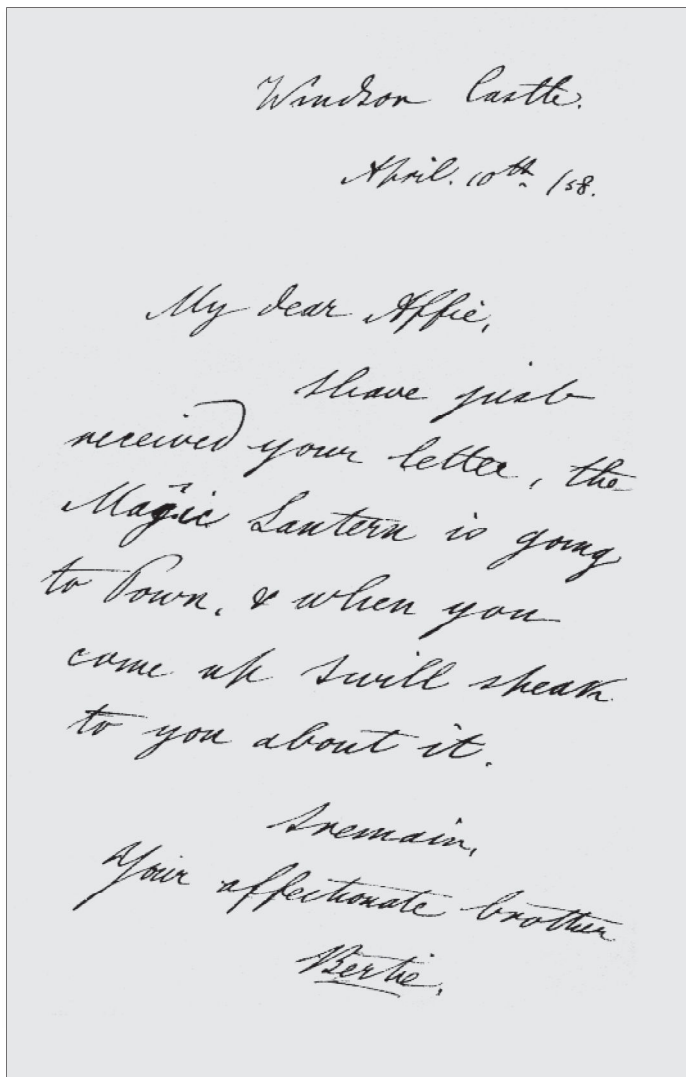 Windsor Castle.
April. 10th /58.
My dear Affie,
I have just
received your letter, the
Magic Lantern is going
to Town, & when you
come up I will speak
to you about it.
I remain,
Your affectionate brother
Bertie.